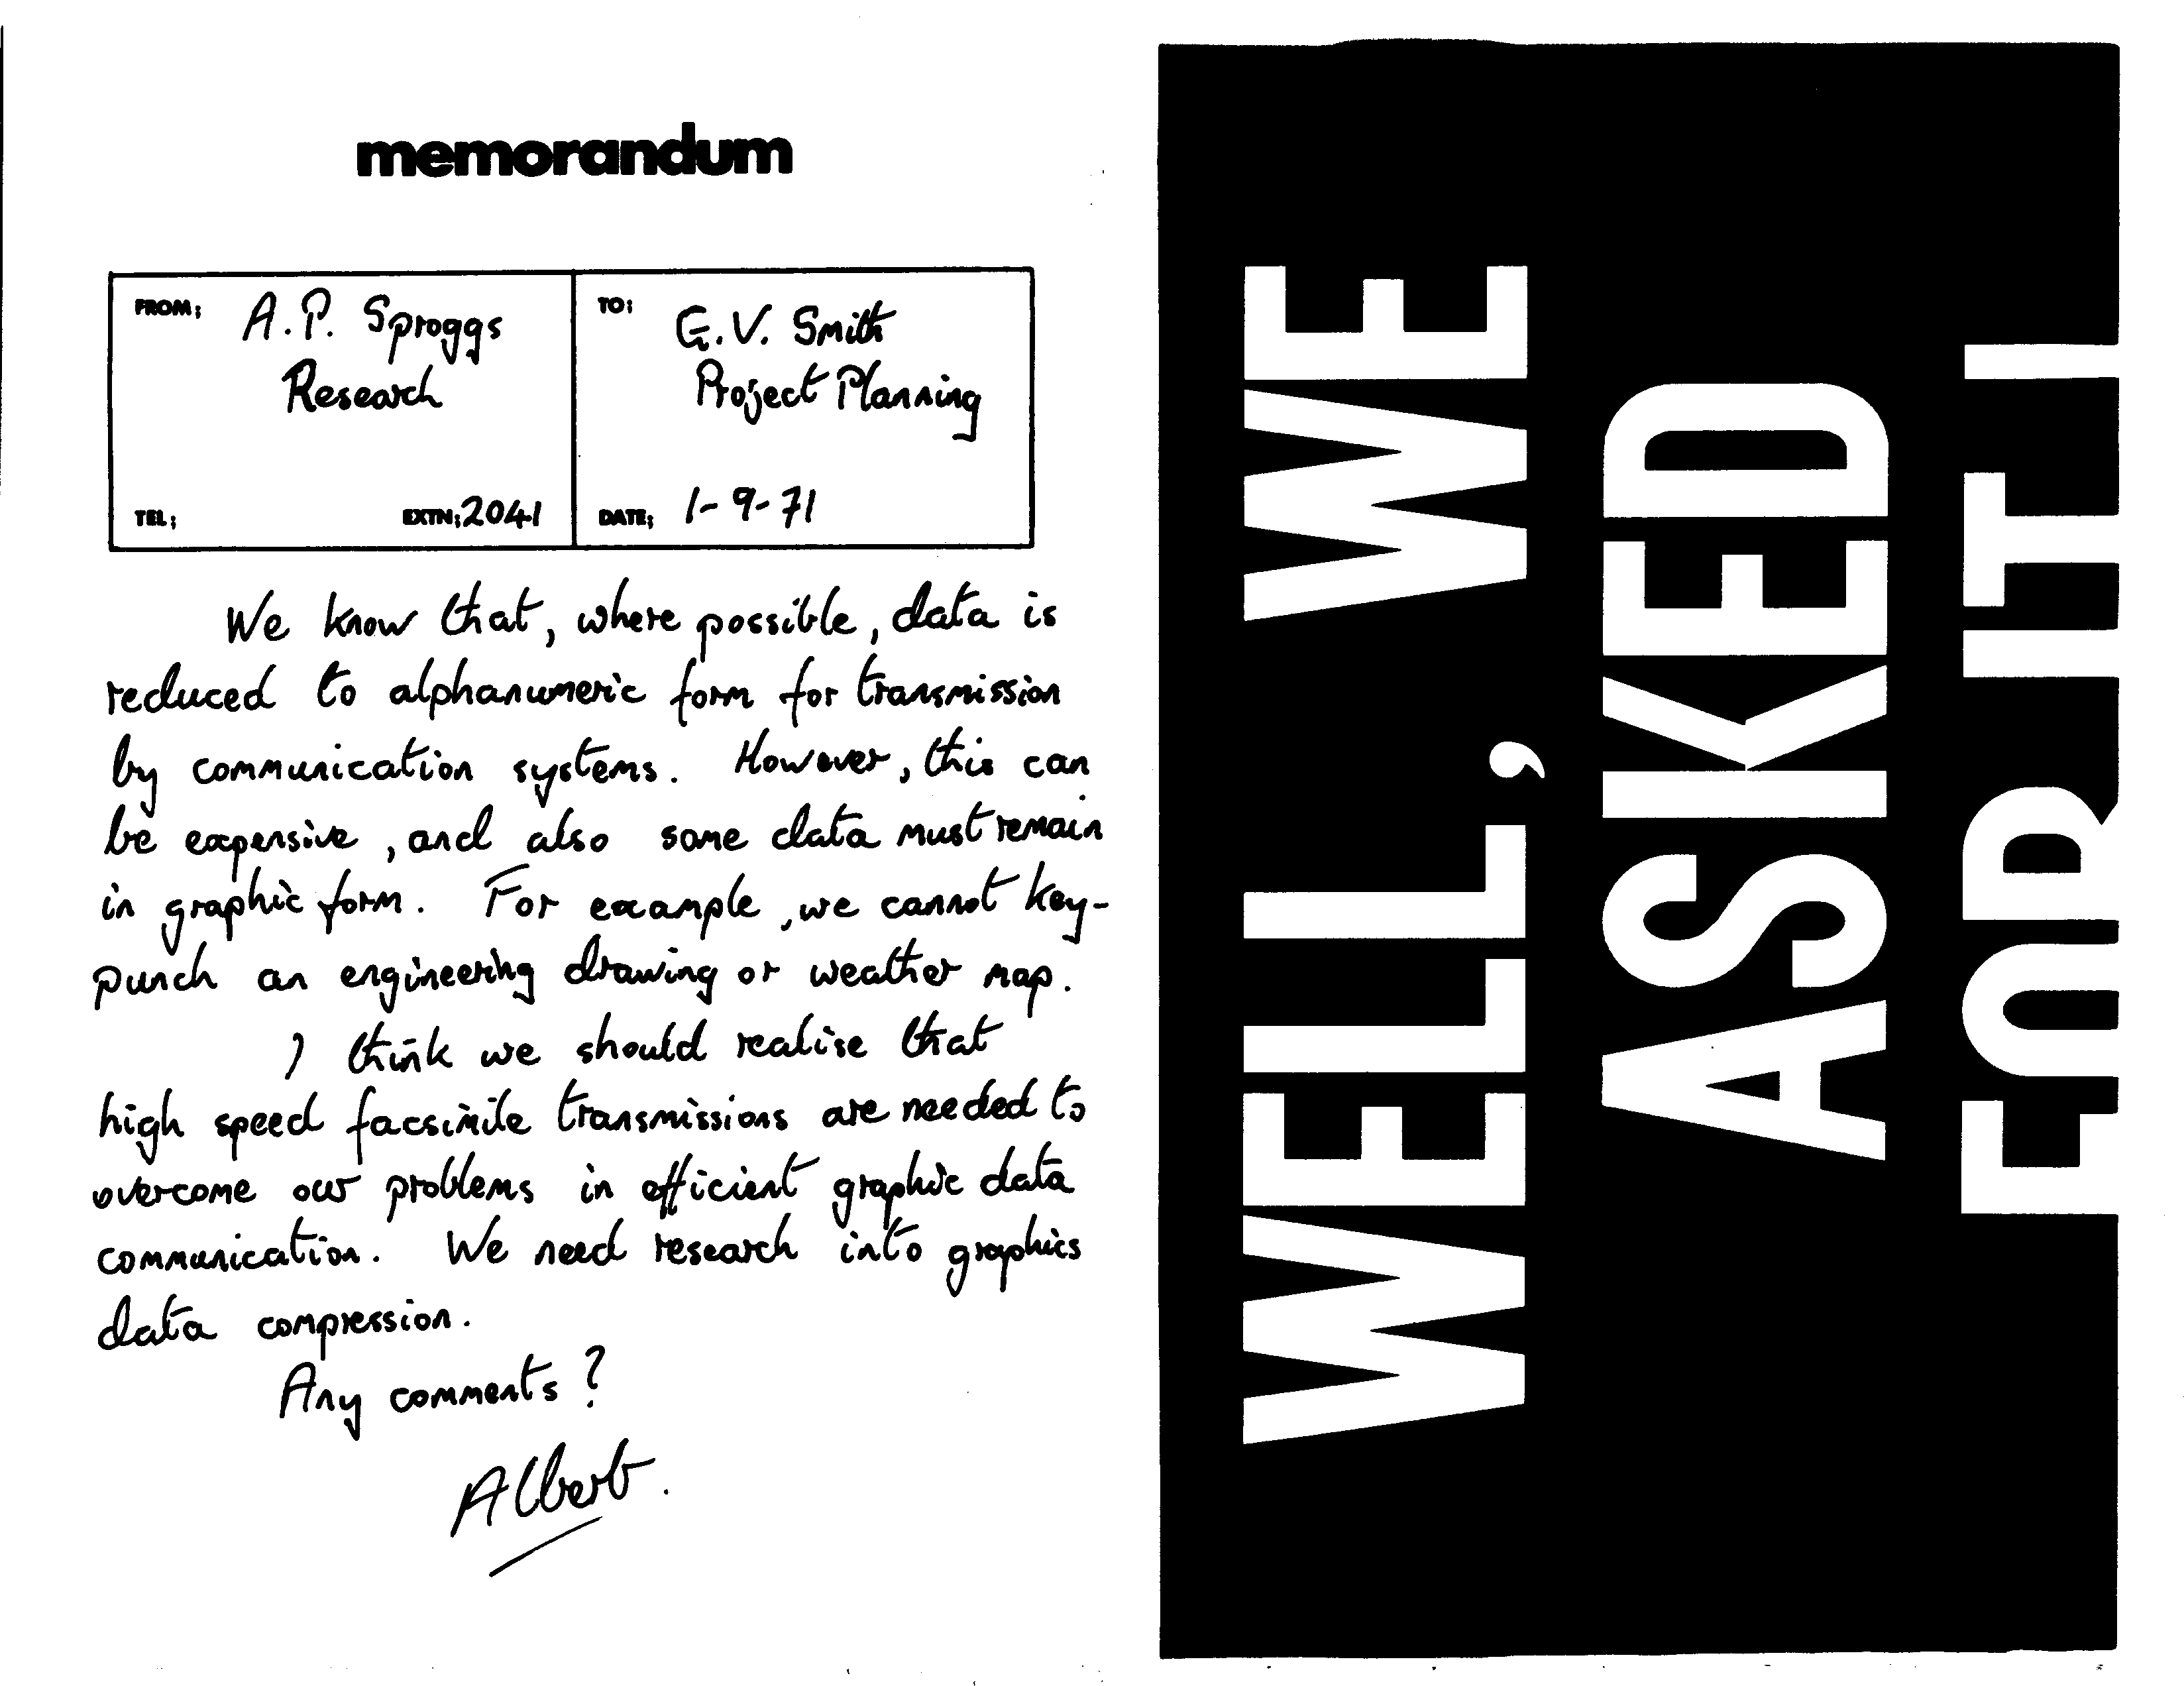 memorandum
FROM: A.P. Sproggs
Research
TEL: EXTN: 2041
TO: G.V. Smith
Project Planning
DATE: 1-9-71
We know that, where possible, data is
reduced to alphanumeric form for transmission
by communication systems. However, this can
be expensive, and also some data must remain
in graphic form. For example, we cannot key-
punch an engineering drawing or weather map.
I think we should realise that
high speed facsimile transmissions are needed to
overcome our problems in efficient graphic data
communication. We need research into graphics
data compression.
Any comments?
Albert.
WELL, WE
ASKED
FOR IT!